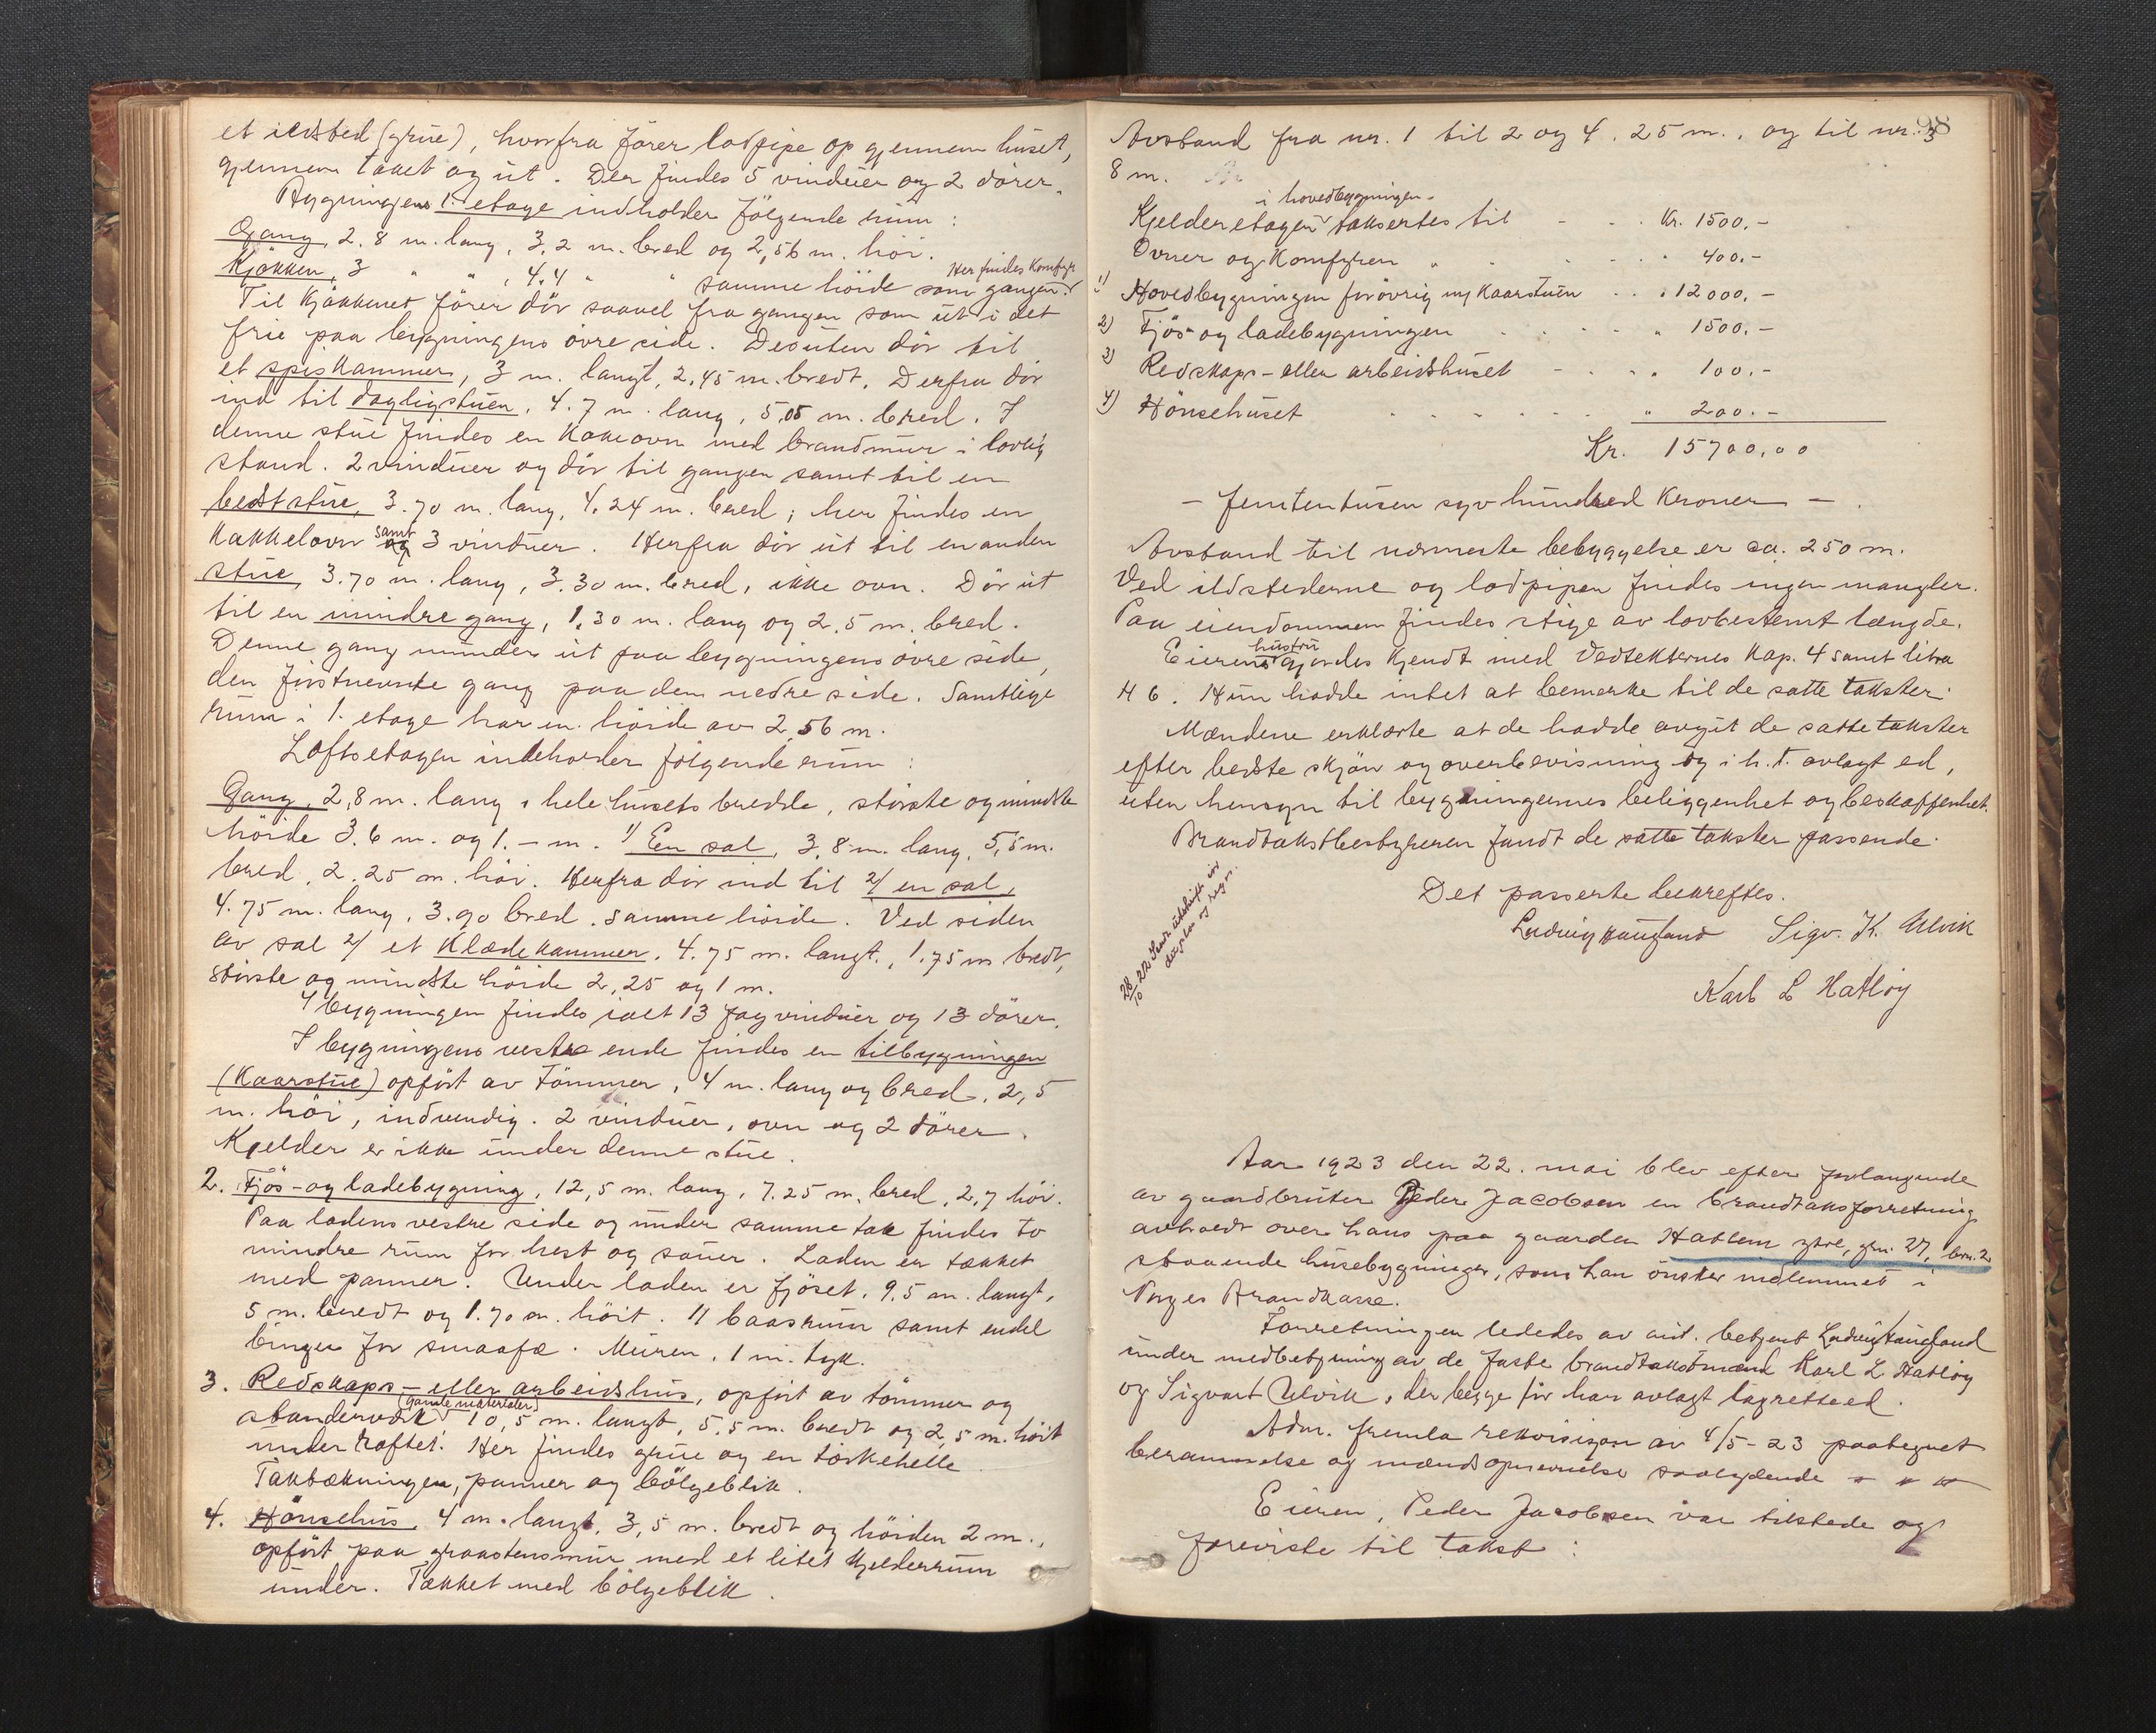 et ildsted (grue), hvorfra förer lodpipe op gjennem huset,
gjennem taket og ut. Der findes 5 vinduer og 2 dörer.
Bygningens 1. etage indholder fölgende rum:
Gang, 2.8 m. lang, 3,2 m. bred og 2,56 m. höi.
Her findes Komfyr
Kjökken, 3 " " , 4,4 " " samme höide som gangen.
Til Kjökkenet förer dör saavel fra gangen som ut i det
frie paa bygningens övre side. Desuten dör til
et spiskammer, 3 m. langt, 2,45 m. bredt. Derfra dör
ind til dagligstuen, 4.7 m. lang, 5,05 m. bred. I
denne stue findes en Kokeovn med brandmur i lovlig
stand. 2 vinduer og dör til gangen samt til en
bedststue, 3.70 m. lang, 4.24 m. bred; her findes en
Kakkelovn samt 3 vinduer. Herfra dör ut til en anden
stue, 3.70 m. lang, 3.30 m. bred, ikke ovn. Dör ut
til en mindre gang, 1,30 m. lang og 2.5 m. bred.
Denne gang munder ut paa bygningens övre side,
den förstnevnte gang paa den nedre side. Samtlige
rum i 1. etage har en höide av 2,56 m.
Loftsetagen indeholder fölgende rum:
Gang, 2,8 m. lang, hele husets bredde, störste og mindste
höide 3.6 m. og 1.- m. 1/ En sal, 3,8 m. lang, 5,5 m.
bred, 2.25 m. höi. Herfra dör ind til 2/ en sal,
4.75 m. lang, 3.90 bred, samme höide. Ved siden
av sal 2/ et Klædekammer, 4.75 m. langt, 1.75 m bredt,
störste og mindste höide 2,25 og 1 m.
I bygningen findes ialt 13 fag vinduer og 13 dörer.
I bygningens vestre ende findes en tilbygningen
(Kaarstue) opfört av Tömmer, 4 m. lang og bred, 2,5
m. höi, indvendig. 2 vinduer, ovn og 2 dörer.
Kjelder er ikke under denne stue.
2. Fjös- og ladebygning, 12,5 m. lang, 7.25 m. bred, 2,7 höi.
Paa ladens vestre side og under samme tak findes to
mindre rum for hest og sauer. Laden er tækket
med panner. Under laden er fjöset, 9.5 m. langt,
5 m. bredt og 1.70 m. höit. 11 baasrum samt endel
binger for smaafæ. Muren, 1 m. tyk.
3. Redskaps- eller arbeidshus, opfört av tömmer og
(gamle materialer)
stenderverk 10,5 m. langt, 5,5 m. bredt og 2,5 m. höit
under raftet. Her findes grue og en törkehelle.
Taktækningen, panner og bölgeblik.
4. Hönsehus, 4 m. langt, 3,5 m. bredt og höiden 2 m.,
opfört paa graastensmur med et litet kjelderrum
under. Tækket med bölgeblik.
98
Avstand fra nr. 1 til 2 og 4, 25 m., og til nr. 3
8 m.
i hovedbygningen
Kjelderetagen taksertes til - . . Kr. 1500.-
Ovner og Komfyren " . . . " 400.-
1) Hovedbygningen forövrig m/ Kaarstuen . . " 12000.-
2) Fjös- og ladebygningen . . . . " 1500.-
3) Redskaps- eller arbeidshuset - . . " 100.-
4) Hönsehuset . . . . . . " 200.-
Kr. 15700,00
- femtentusen syv hundred Kroner -
Avstand til nærmeste bebyggelse er ca. 250 m.
Ved ildstederne og lodpipen findes ingen mangler.
Paa eiendommen findes stige av lovbestemt længde.
hustru
Eierens gjordes kjendt med Vedtekternes Kap. 4 samt litra
H 6. Hun hadde intet at bemerke til de satte takster.
Mændene erklærte at de hadde avgit de satte takster
efter bedste skjön og overbevisning og i h.t. avlagt ed,
uten hensyn til bygningernes beliggenhet og beskaffenhet.
Brandtakstbestyreren fandt de satte takster passende.
Det passerte bekreftes.
Ludvig Haugland Sigv. K. Ulvik
Karl L Hatlöy
28/10 22 Sendt utskrift in
duplo og regn.
Aar 1923 den 22. mai blev efter forlangende
av gaardbruker Peder Jacobsen en brandtaksforretning
avholdt over hans paa gaarden Hatlem ytre, gnr. 27, brn. 2
staaende husebygninger, som han önsker indlemmet i
Norges Brandkasse.
Forretningen lededes av aut. betjent Ludvig Haugland
under medbetjening av de faste brandtakstmænd Karl L Hatlöy
og Sigvart Ulvik, der begge för har avlagt lagretteed.
Adm. fremla rekvisisjon av 4/5-23 paategnet
berammelse og mændsopnevnelse saalydende
Eieren, Peder Jacobsen var tilstede og
foreviste til takst: